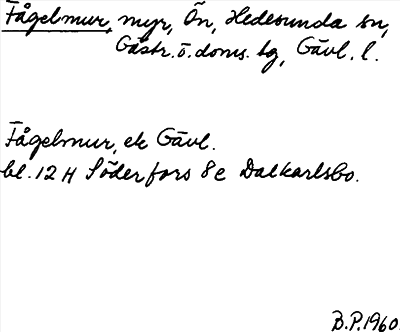 Fågelmur, myr, Ön, Hedesunda sn,
Gästr. ö. doms. hg, Gävl. l.
Fågelmur, ek Gävl.
bl. 12 H Söderfors 8e Dalkarlsbo.
B.P. 1960